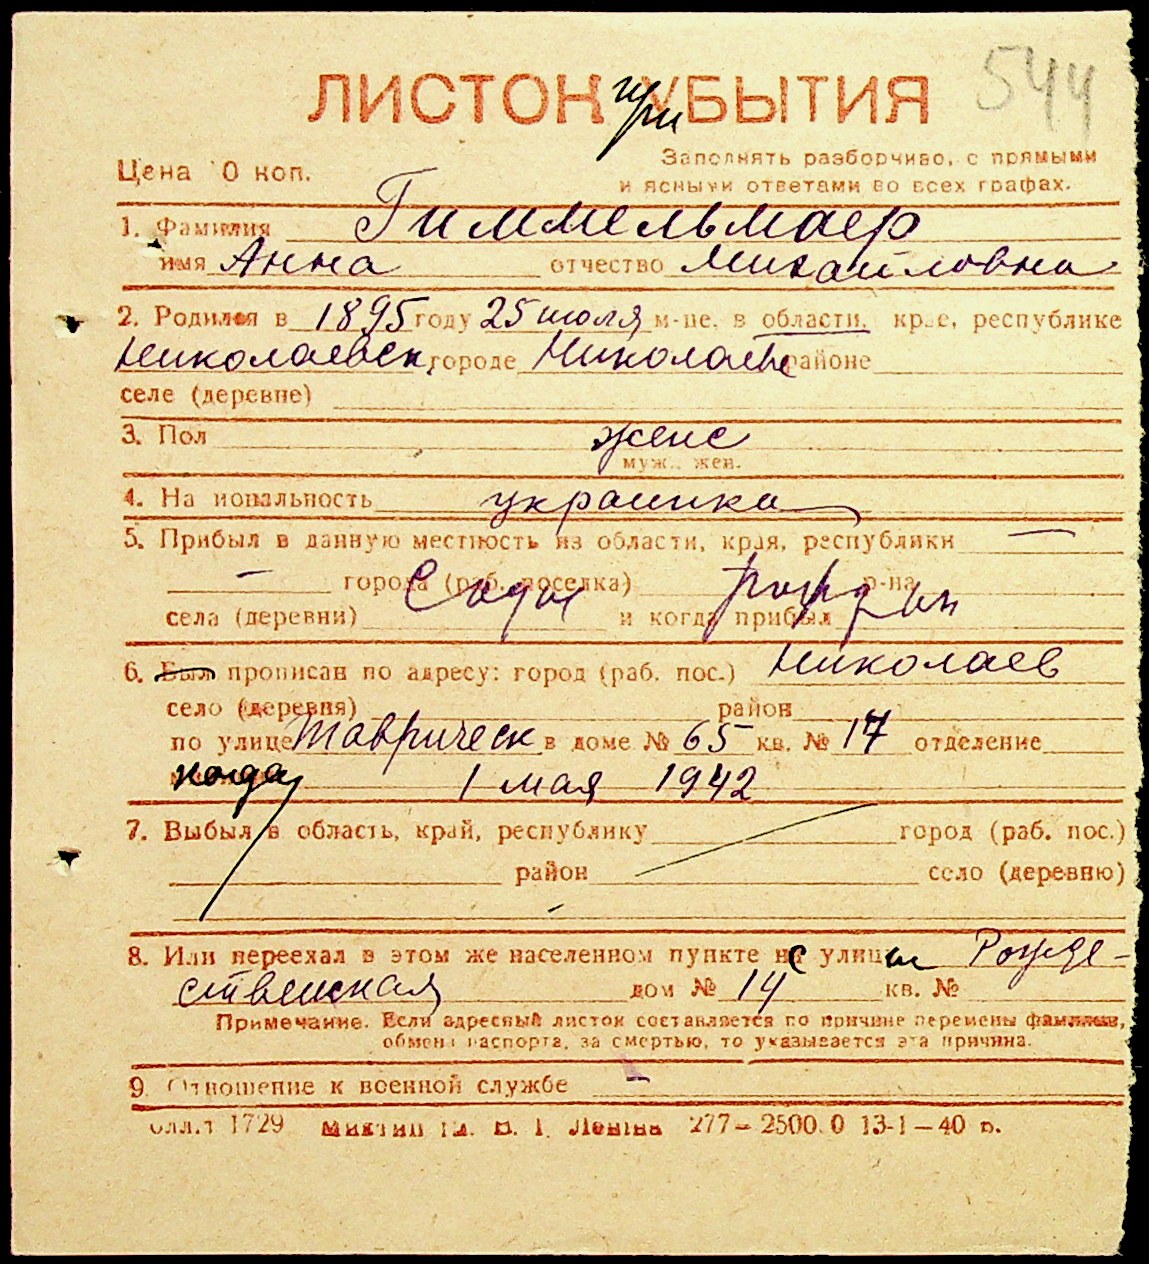 ЛИСТОК при УБЫТИЯ 544
Цена 10 коп.
Заполнять разборчиво, с прямыми
и ясными ответами во всех графах.
1. Фамилия Гиммельмаер
имя Анна отчество Михайловна
2. Родился в 1895 году 25 июля м-це, в области, крае, республике
Николаевск, городе Николаеве районе
селе (деревне)
3. Пол женс
муж., жен.
4. Национальность украинка
5. Прибыл в данную местность из области, края, республики —
— города (раб. поселка) р-на
села (деревни) и когда прибыл
6. Был прописан по адресу: город (раб. пос.) Николаев
село (деревня) район
по улице Таврическ в доме № 65 кв. № 17 отделение
когда 1 мая 1942
7. Выбыл в область, край, республику город (раб. пос.)
район село (деревню)
8. Или переехал в этом же населенном пункте с улицы Рожде-
ственская дом № 14 кв. №
Примечание. Если адресный листок составляется по причине перемены фамилии,
обмена паспорта, за смертью, то указывается эта причина.
9. Отношение к военной службе —
1729 Ленина 277—2500.0 13-1—40 г.